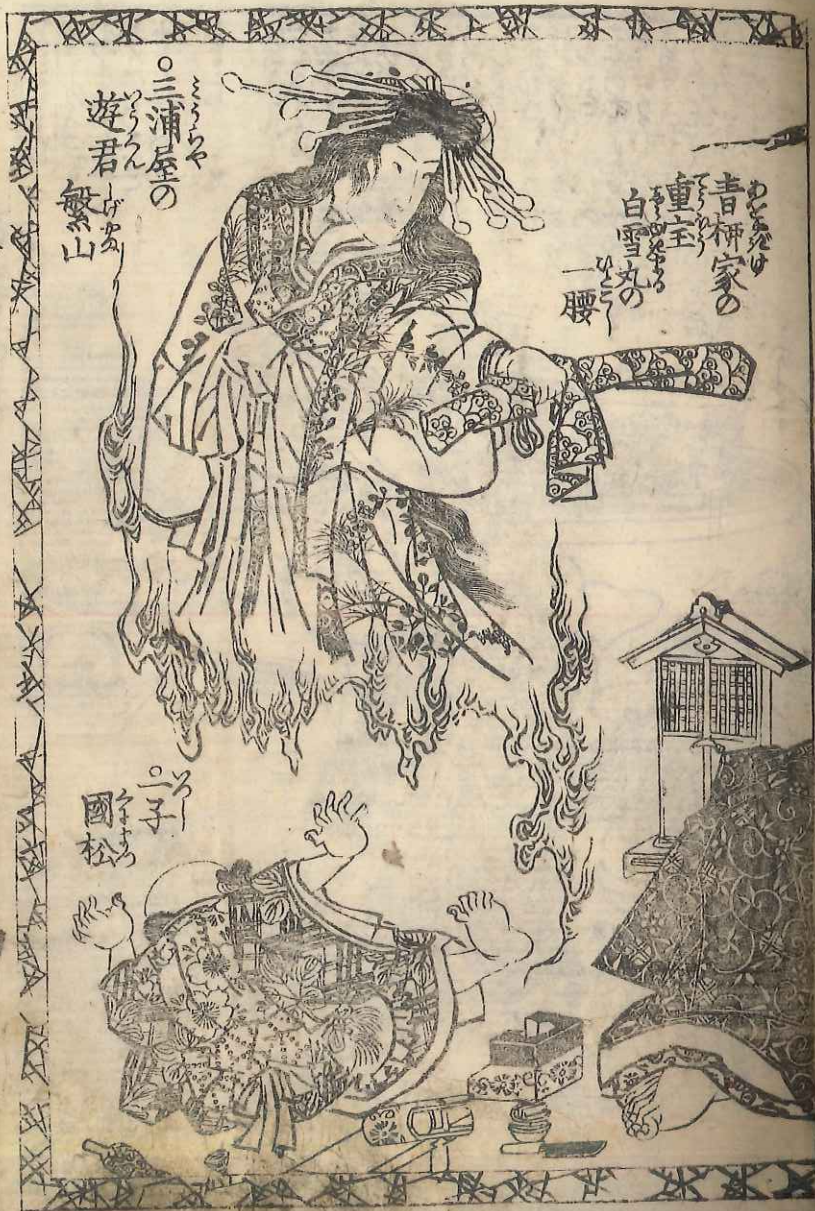 青柳家の
重宝
白雪丸の
一腰
○三浦屋の
遊君
繁山
○一子
國松